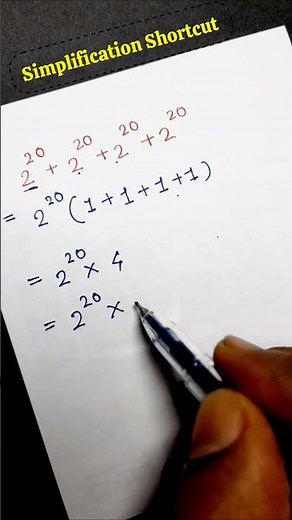 Simplification Shortcut
2²⁰ + 2²⁰ + 2²⁰ + 2²⁰
= 2²⁰ (1+1+1+1)
= 2²⁰ × 4
= 2²⁰ ×